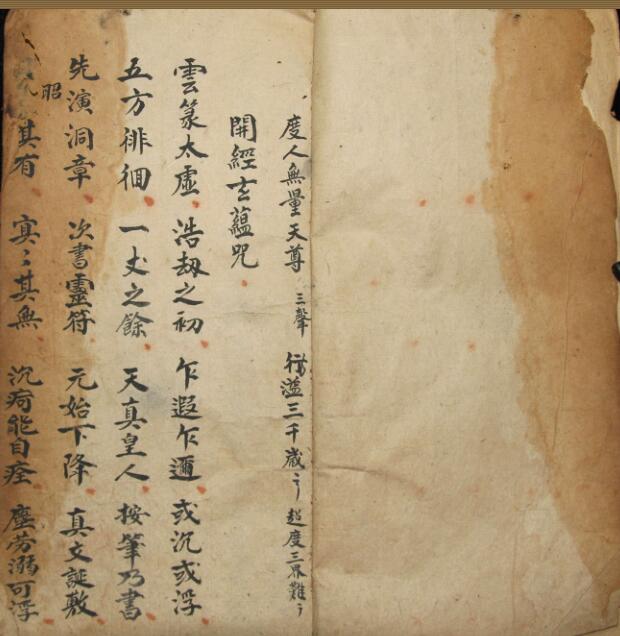 度人無量天尊 三聲 行滿三千歲〻 超度三界難〻
開經玄蘊咒
雲篆太虛 浩劫之初 乍遐乍邇 或沉或浮
五方徘徊 一丈之餘 天真皇人 按筆乃書
先演洞章 次書靈符 元始下降 真文誕敷
昭
其有 寞〻其無 沉疴能自痊 塵劳溺可浮